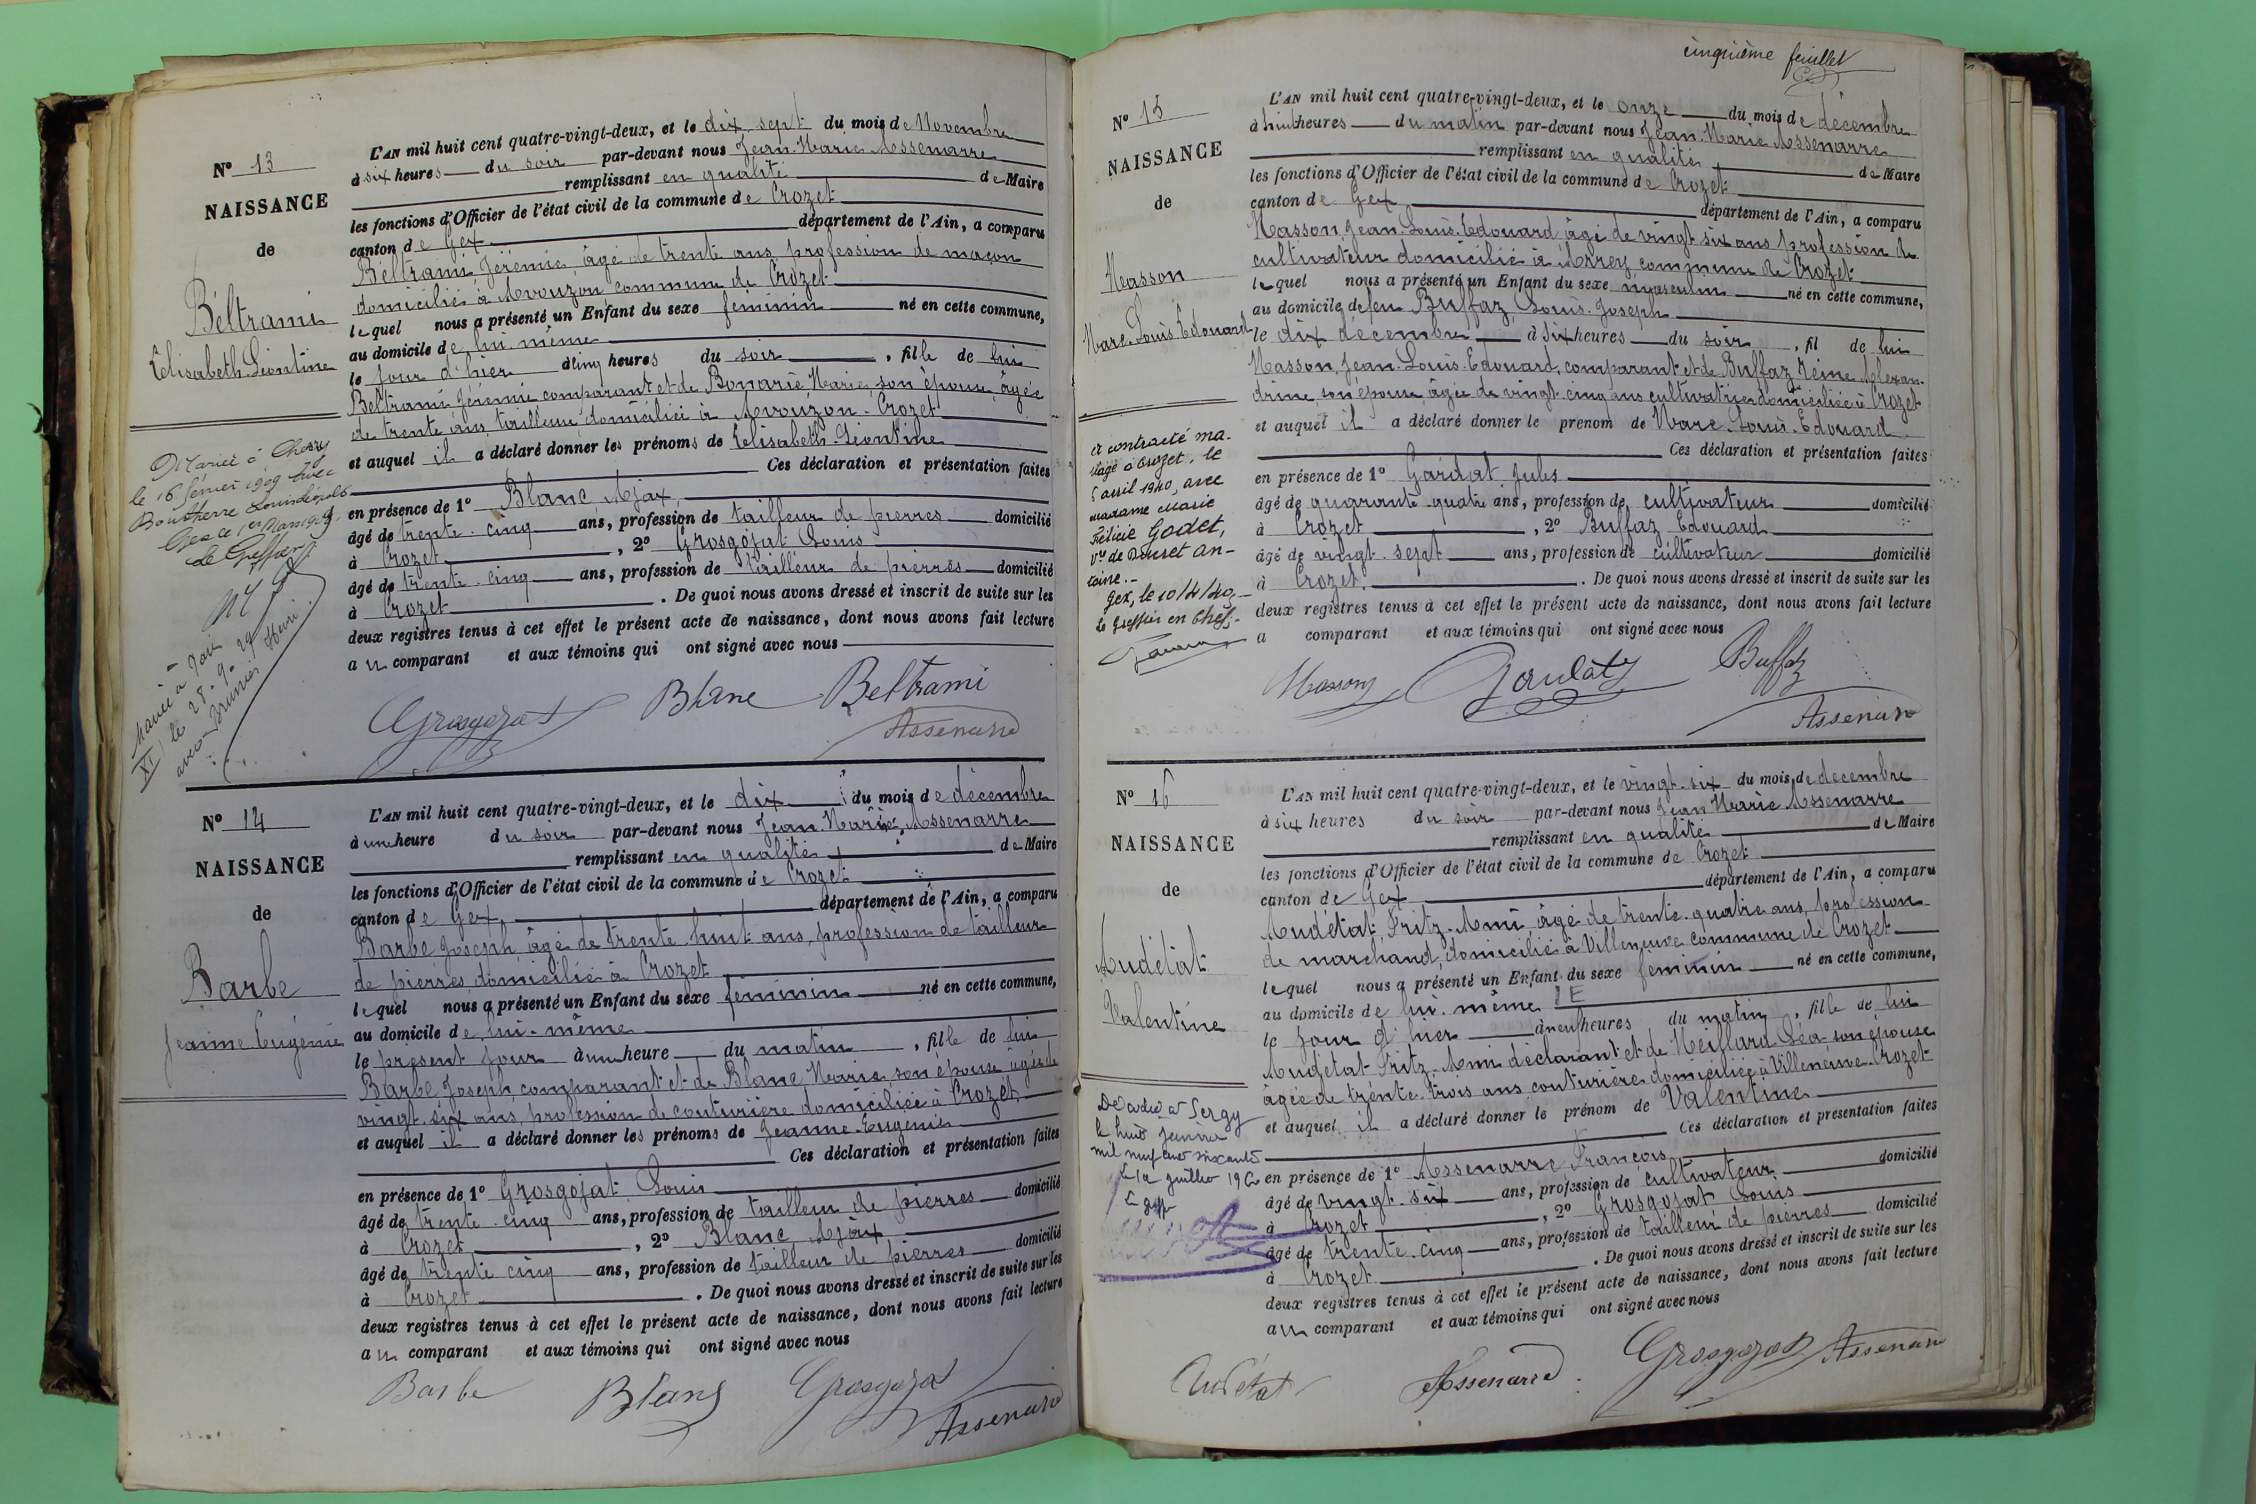 N° 13
NAISSANCE
de
Béltrami
Elisabeth Léontine
Mariée à Chézy
le 16 février 1909 avec
Bouttherre
Gex le 1er Mars 1909
Le Greffier
Mariée à Paris
XI le 28.9.29
avec Brunier Henri
L'AN mil huit cent quatre-vingt-deux, et le dix sept du mois de Novembre
à six heures du soir par-devant nous Jean-Marie Assenarre
remplissant en qualité de Maire
les fonctions d'Officier de l'état civil de la commune de Crozet
canton de Gex département de l'Ain, a comparu
Béltrami Jérémie, âgé de trente ans, profession de maçon
domicilié à Avouzon commune de Crozet
lequel nous a présenté un Enfant du sexe féminin né en cette commune,
au domicile de lui même
le jour d'hier à cinq heures du soir, fille de lui
Beltrami Jérémie comparant et de Bonarié Marie, son épouse, âgée
de trente ans, tailleuse, domiciliée à Avouzon-Crozet
et auquel il a déclaré donner les prénoms de Elisabeth Léontine
Ces déclaration et présentation faites
en présence de 1° Blanc Ajax
âgé de trente-cinq ans, profession de tailleur de pierres domicilié
à Crozet, 2° Grosgojat Louis
âgé de trente-cinq ans, profession de tailleur de pierres domicilié
à Crozet. De quoi nous avons dressé et inscrit de suite sur les
deux registres tenus à cet effet le présent acte de naissance, dont nous avons fait lecture
au comparant et aux témoins qui ont signé avec nous
Grosgojat Blanc Beltrami
Assenarre
N° 14
NAISSANCE
de
Barbe
Jeanne Eugénie
L'AN mil huit cent quatre-vingt-deux, et le dix du mois de décembre
à une heure du soir par-devant nous Jean-Marie Assenarre
remplissant en qualité de Maire
les fonctions d'Officier de l'état civil de la commune de Crozet
canton de Gex, département de l'Ain, a comparu
Barbe Joseph, âgé de trente huit ans, profession de tailleur
de pierres, domicilié à Crozet
lequel nous a présenté un Enfant du sexe féminin né en cette commune,
au domicile de lui-même
le présent jour à une heure du matin, fille de lui
Barbe Joseph, comparant et de Blanc Marie, son épouse âgée de
vingt-six ans, profession de couturière domiciliée à Crozet,
et auquel il a déclaré donner les prénoms de Jeanne-Eugénie
Ces déclaration et présentation faites
en présence de 1° Grosgojat Louis
âgé de trente-cinq ans, profession de tailleur de pierres domicilié
à Crozet, 2° Blanc Ajax
âgé de trente cinq ans, profession de tailleur de pierres domicilié
à Crozet. De quoi nous avons dressé et inscrit de suite sur les
deux registres tenus à cet effet le présent acte de naissance, dont nous avons fait lecture
au comparant et aux témoins qui ont signé avec nous
Barbe Blanc Grosgojat
Assenarre
cinquième feuillet
N° 15
NAISSANCE
de
Masson
Marc-Louis-Edouard
a contracté ma-
riage à Crozet, le
5 avril 1940, avec
madame Marie
Félicie Godet,
Vve de Douset An-
toine.-
Gex, le 10/4/40.-
Le Greffier en Chef.-
L'AN mil huit cent quatre-vingt-deux, et le onze du mois de décembre
à huit heures du matin par-devant nous Jean-Marie Assenarre
remplissant en qualité de Maire
les fonctions d'Officier de l'état civil de la commune de Crozet
canton de Gex département de l'Ain, a comparu
Masson, Jean-Louis-Edouard, âgé de vingt-six ans, profession de
cultivateur domicilié à Avrey, commune de Crozet
lequel nous a présenté un Enfant du sexe masculin né en cette commune,
au domicile de feu Buffaz, Louis-Joseph
le dix décembre à six heures du soir, fil de lui
Masson, Jean-Louis-Edouard, comparant et de Buffaz Reine Alexan-
drine, son épouse, âgée de vingt-cinq ans cultivatrice domiciliée à Crozet
et auquel il a déclaré donner le prénom de Marc-Louis-Edouard
Ces déclaration et présentation faites
en présence de 1° Gardat Jules
âgé de quarante-quatre ans, profession de cultivateur domicilié
à Crozet, 2° Buffaz Edouard
âgé de vingt-sept ans, profession de cultivateur domicilié
à Crozet. De quoi nous avons dressé et inscrit de suite sur les
deux registres tenus à cet effet le présent acte de naissance, dont nous avons fait lecture
a comparant et aux témoins qui ont signé avec nous
Masson Buffaz
Assenarre
N° 16
NAISSANCE
de
Audétat
Valentine
Décédée à Sergy
le huit janvier
mil neuf cent soixante
L'AN mil huit cent quatre-vingt-deux, et le vingt-six du mois de décembre
à six heures du soir par-devant nous Jean Marie Assenarre
remplissant en qualité de Maire
les fonctions d'Officier de l'état civil de la commune de Crozet
canton de Gex département de l'Ain, a comparu
Audétat Fritz-Ami, âgé de trente-quatre ans, profession
de marchand, domicilié à Villeneuve commune de Crozet
lequel nous a présenté un Enfant du sexe féminin né en cette commune,
au domicile de lui-même
le jour d'hier à neuf heures du matin, fille de lui
Audétat Fritz-Ami déclarant et de Meillard Léa son épouse
âgée de trente-trois ans, couturière domiciliée à Villeneuve-Crozet
et auquel il a déclaré donner le prénom de Valentine
Ces déclaration et présentation faites
en présence de 1° Assenarre François
âgé de vingt-six ans, profession de cultivateur domicilié
à Crozet, 2° Grosgojat Louis
âgé de trente-cinq ans, profession de tailleur de pierres domicilié
à Crozet. De quoi nous avons dressé et inscrit de suite sur les
deux registres tenus à cet effet le présent acte de naissance, dont nous avons fait lecture
au comparant et aux témoins qui ont signé avec nous
Audétat Assenarre Grosgojat Assenarre